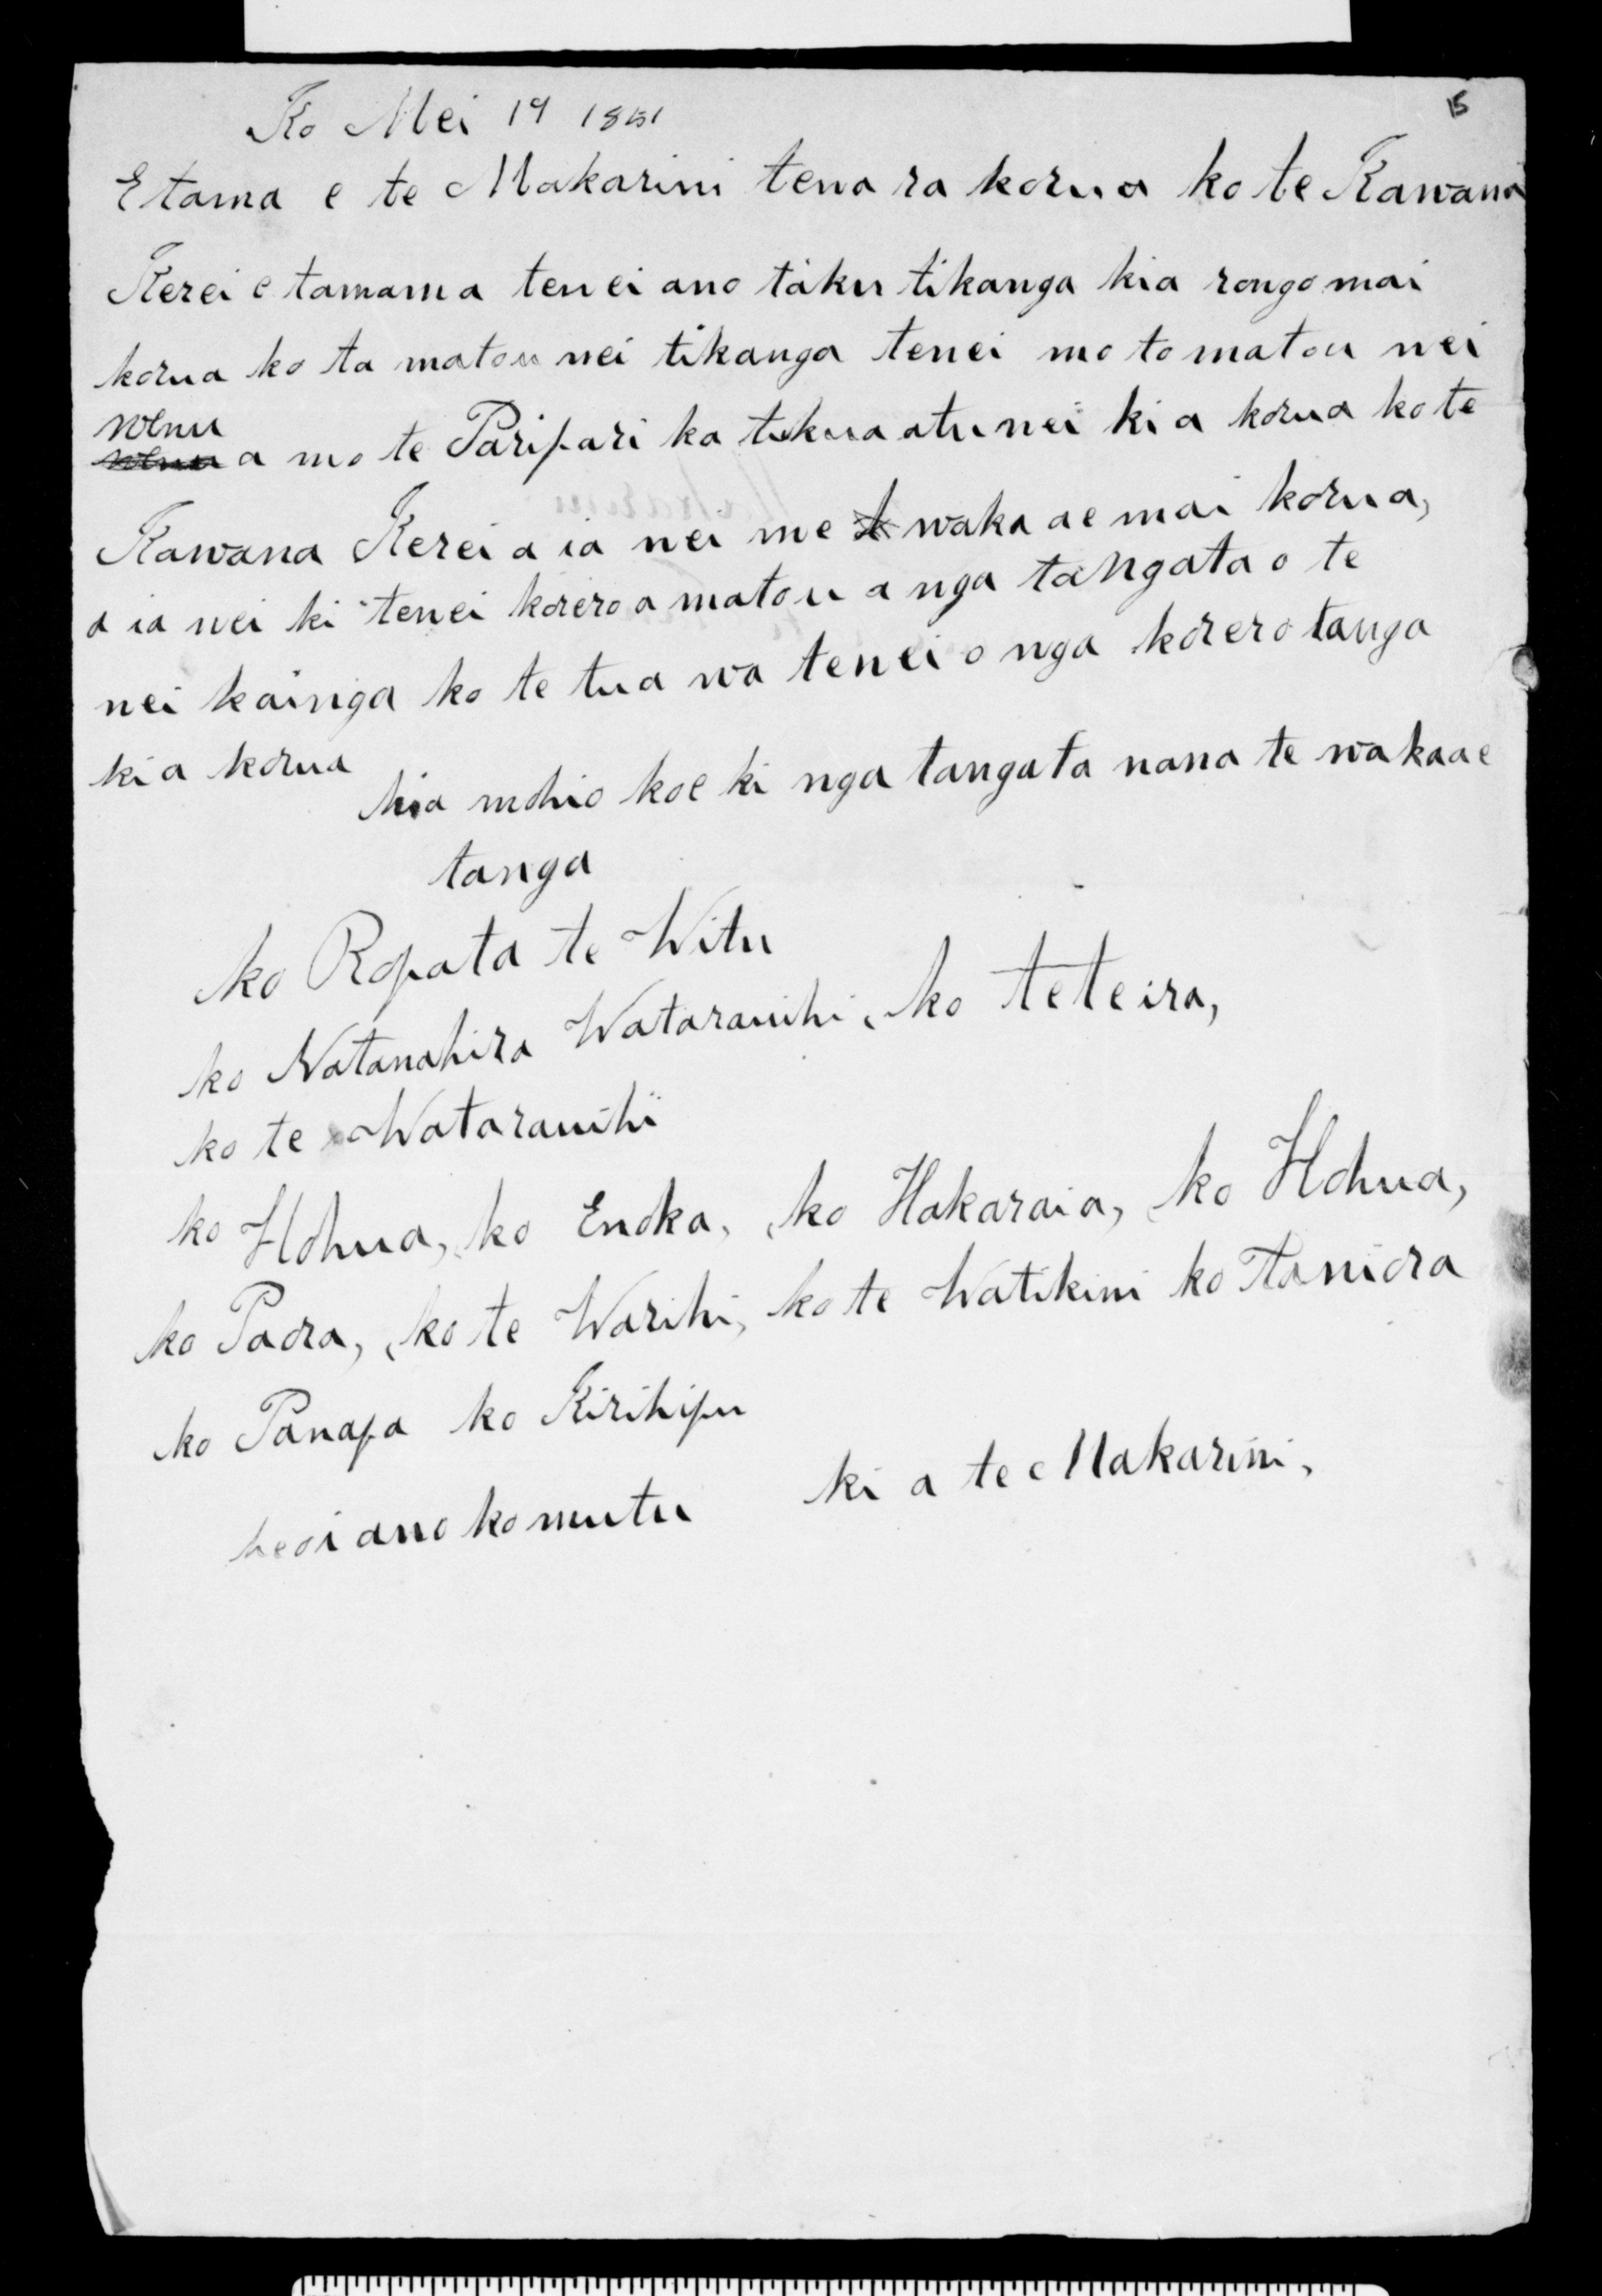 15
Ko Mei 19 1851
E tama e te Makarini tena ra korua ko te Kawana
Kerei e tamama tenei ano taku tikanga kia rongo mai
korua ko ta matou nei tikanga tenei mo to matou nei
wenu
wenua mo te Paripari ka tukua atu nei ki a korua ko te
Kawana Kerei a ia nei me waka ae mai korua,
a ia nei ki tenei korero a matou a nga tangata o te
nei kainga ko te tua wa tenei o nga korero tanga
ki a korua
kia mohio koe ki nga tangata nana te wakaae
tanga
ko Ropata te Witu
ko Natanahira Wataranihi, ko teteira,
ko te Wataranihi
ko Hohua, ko Enoka, ko Hakaraia, ko Hohua,
ko Paora, ko te Warihi, ko te Watikini ko Taniora
ko Panapa ko Kirihipu
heoi ano ko mutu ki a te Makarini,